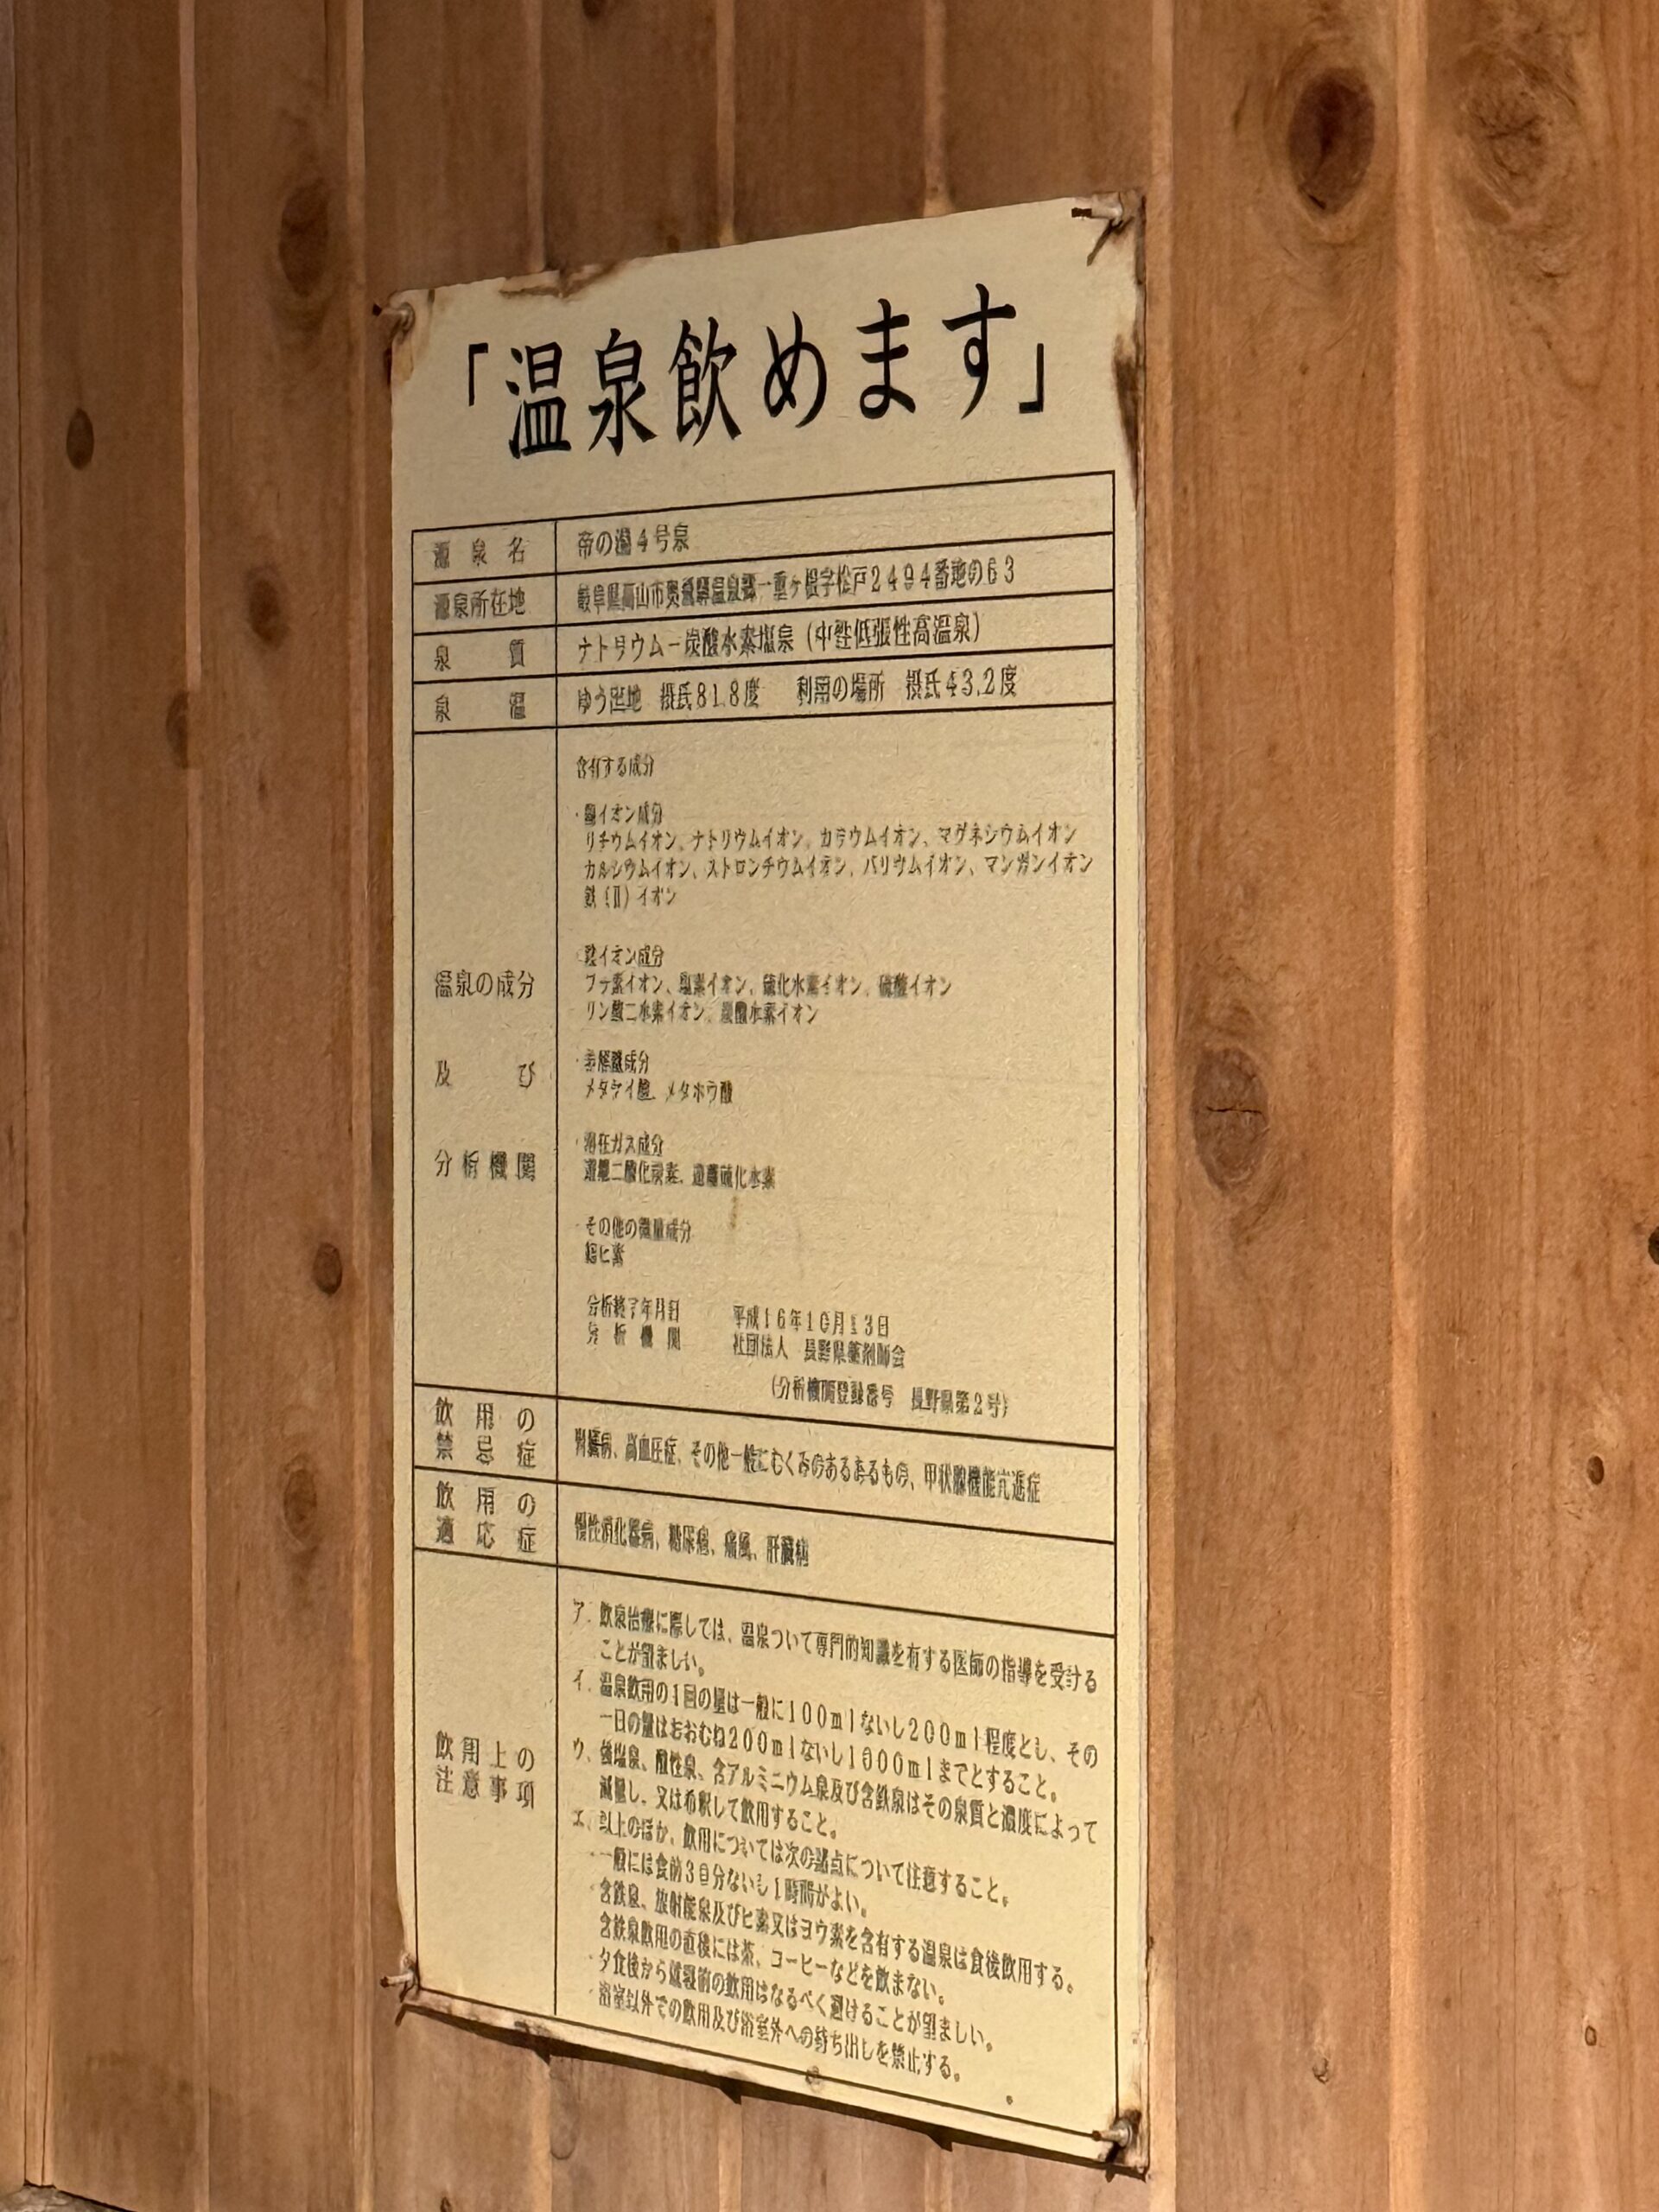 「温泉飲めます」
源泉名 帝の湯4号泉
源泉所在地 岐阜県高山市奥飛騨温泉郷一重ヶ根字松戸2494番地の63
泉質 ナトリウム－炭酸水素塩泉（中性低張性高温泉）
泉温 ゆう出地 摂氏81.8度 利用の場所 摂氏43.2度
温泉の成分
及び
分析機関
含有する成分
・陽イオン成分
リチウムイオン、ナトリウムイオン、カリウムイオン、マグネシウムイオン
カルシウムイオン、ストロンチウムイオン、バリウムイオン、マンガンイオン
鉄（Ⅱ）イオン
・陰イオン成分
フッ素イオン、塩素イオン、硫化水素イオン、硫酸イオン
リン酸二水素イオン、炭酸水素イオン
・非解離成分
メタケイ酸、メタホウ酸
・溶在ガス成分
遊離二酸化炭素、遊離硫化水素
・その他の微量成分
総ヒ素
分析終了年月日 平成16年10月13日
分析機関 社団法人 長野県薬剤師会
（分析機関登録番号 長野県第2号）
飲用の
禁忌症
腎臓病、高血圧症、その他一般にむくみのあるあるもの、甲状腺機能亢進症
飲用の
適応症
慢性消化器病、糖尿病、痛風、肝臓病
飲用上の
注意事項
ア．飲泉治療に際しては、温泉ついて専門的知識を有する医師の指導を受ける
ことが望ましい。
イ．温泉飲用の1回の量は一般に100mlないし200ml程度とし、その
一日の量はおおむね200mlないし1000mlまでとすること。
ウ．強塩泉、酸性泉、含アルミニウム泉及び含鉄泉はその泉質と濃度によって
減量し、又は希釈して飲用すること。
エ．以上のほか、飲用については次の諸点について注意すること。
・一般には食前30分ないし1時間がよい。
・含鉄泉、放射能泉及びヒ素又はヨウ素を含有する温泉は食後飲用する。
含鉄泉飲用の直後には茶、コーヒーなどを飲まない。
・夕食後から就寝前の飲用はなるべく避けることが望ましい。
・浴室以外での飲用及び浴室外への持ち出しを禁止する。